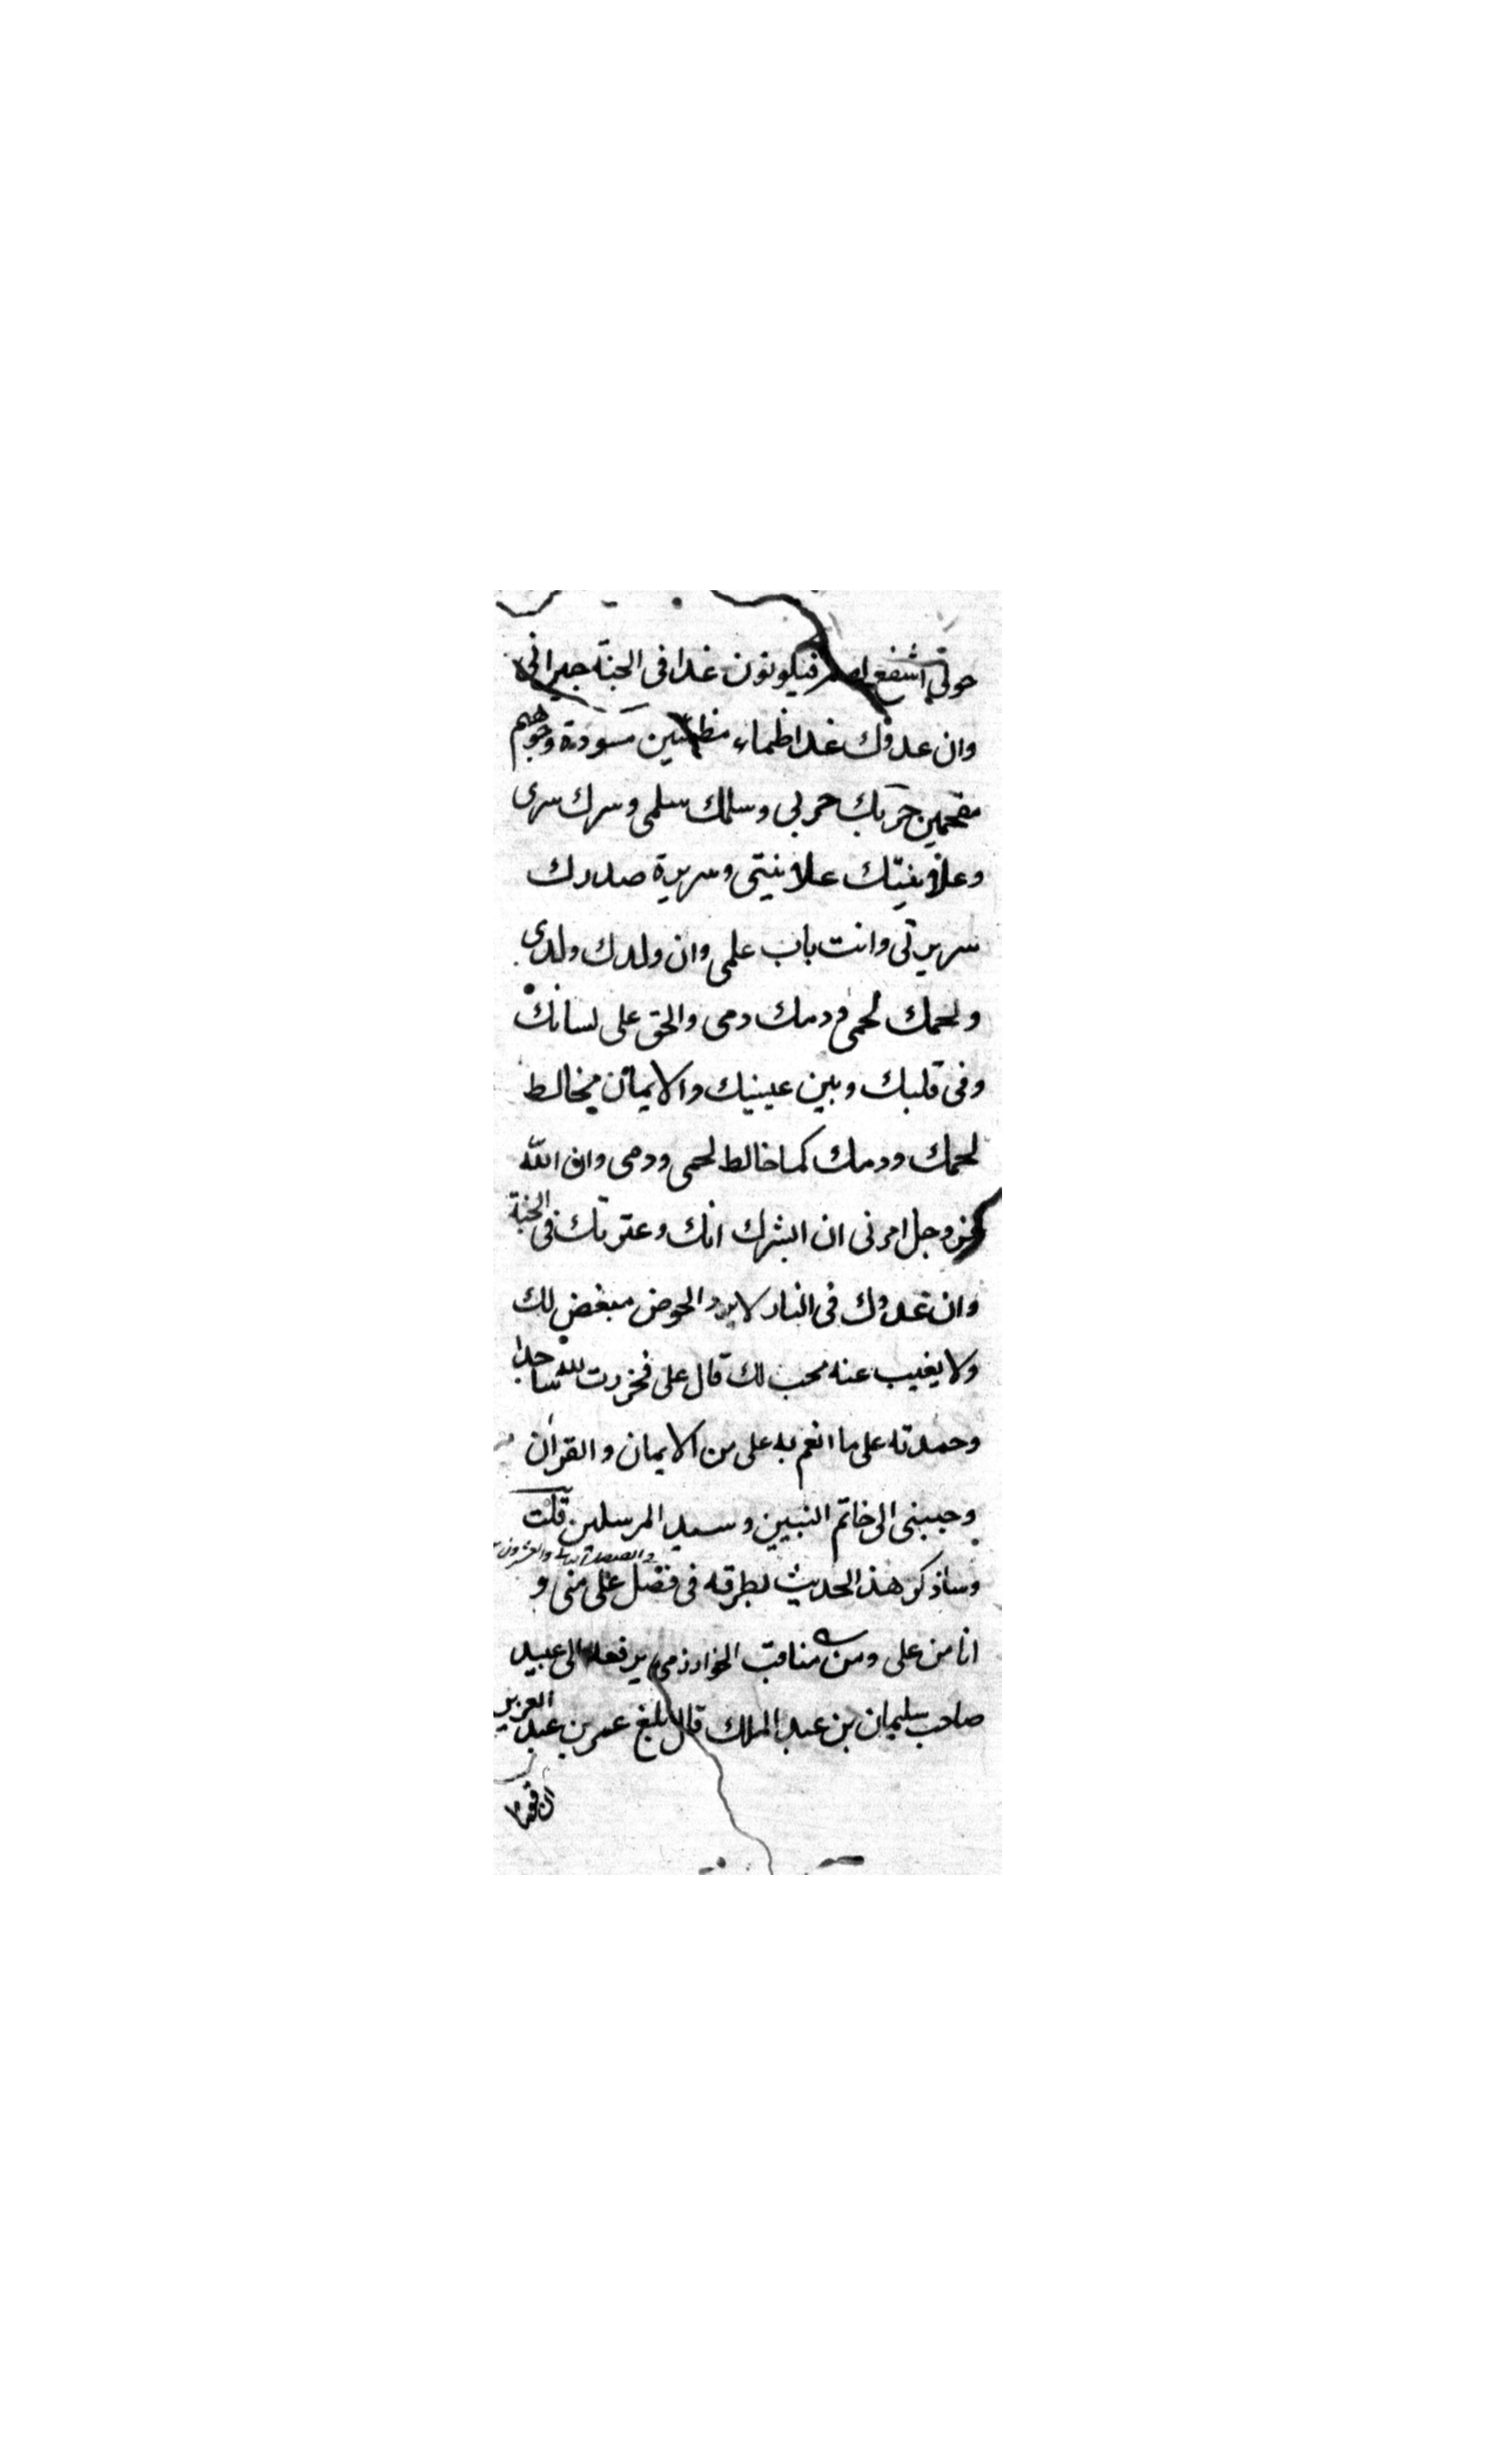 حولى اشفع لهم فيكونون غدا فى الجنة جيرانى
وان عدوك غدا ظماء مظمئين مسودة وجوههم
مقحمين حربك حربى وسلمك سلمى وسرك سرى
وعلانيتك علانيتى وسريرة صدرك
سريرتى وانت باب علمى وان ولدك ولدى
ولحمك لحمى ودمك دمى والحق على لسانك
وفى قلبك وبين عينيك والايمان مخالط
لحمك ودمك كما خالط لحمى ودمى وان الله
عز وجل امرنى ان ابشرك انك وعترتك فى الجنة
وان عدوك فى النار لا يرد الحوض مبغض لك
ولا يغيب عنه محب لك قال على فخررت لله ساجدا
وحمدته على ما انعم به على من الايمان والقران
وحببنى الى خاتم النبيين وسيد المرسلين قلت
وساذكر هذ الحديث بطرقه فى فضل على منى و
انا من على ومن مناقب الخوارزمى يرفعه الى عبيد
صاحب سليمان بن عبد الملك قال بلغ عمر بن عبد العزيز
ان قوما